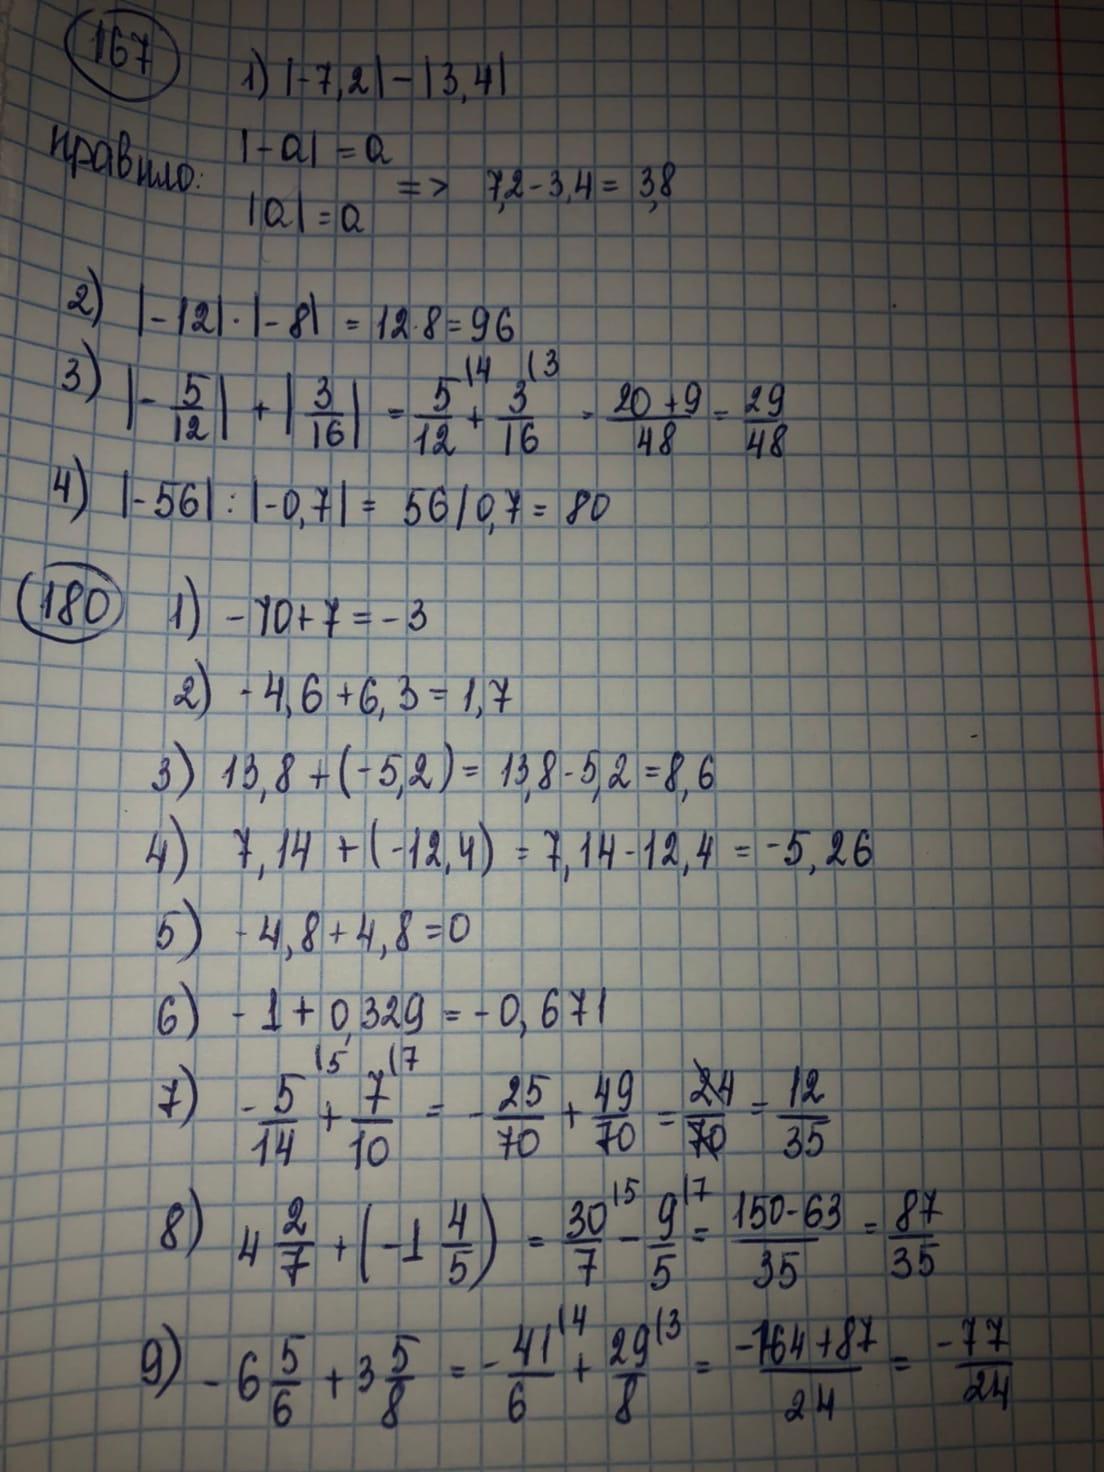 167
1) |-7,2| - |3,4|
правило: |-a| = a
|a| = a => 7,2 - 3,4 = 3,8
2) |-12| · |-8| = 12·8 = 96
3) |-5/12| + |3/16| = 5/12 \4 + 3/16 \3 = 20+9/48 = 29/48
4) |-56| : |-0,7| = 56/0,7 = 80
180
1) -10+7 = -3
2) -4,6+6,3 = 1,7
3) 13,8+(-5,2) = 13,8-5,2 = 8,6
4) 7,14+(-12,4) = 7,14-12,4 = -5,26
5) -4,8+4,8 = 0
6) -1+0,329 = -0,671
7) -5/14 \5 + 7/10 \7 = -25/70 + 49/70 = 24/70 = 12/35
8) 4 2/7 + (-1 4/5) = 30/7 \5 - 9/5 \7 = 150-63/35 = 87/35
9) -6 5/6 + 3 5/8 = -41/6 \4 + 29/8 \3 = -164+87/24 = -77/24